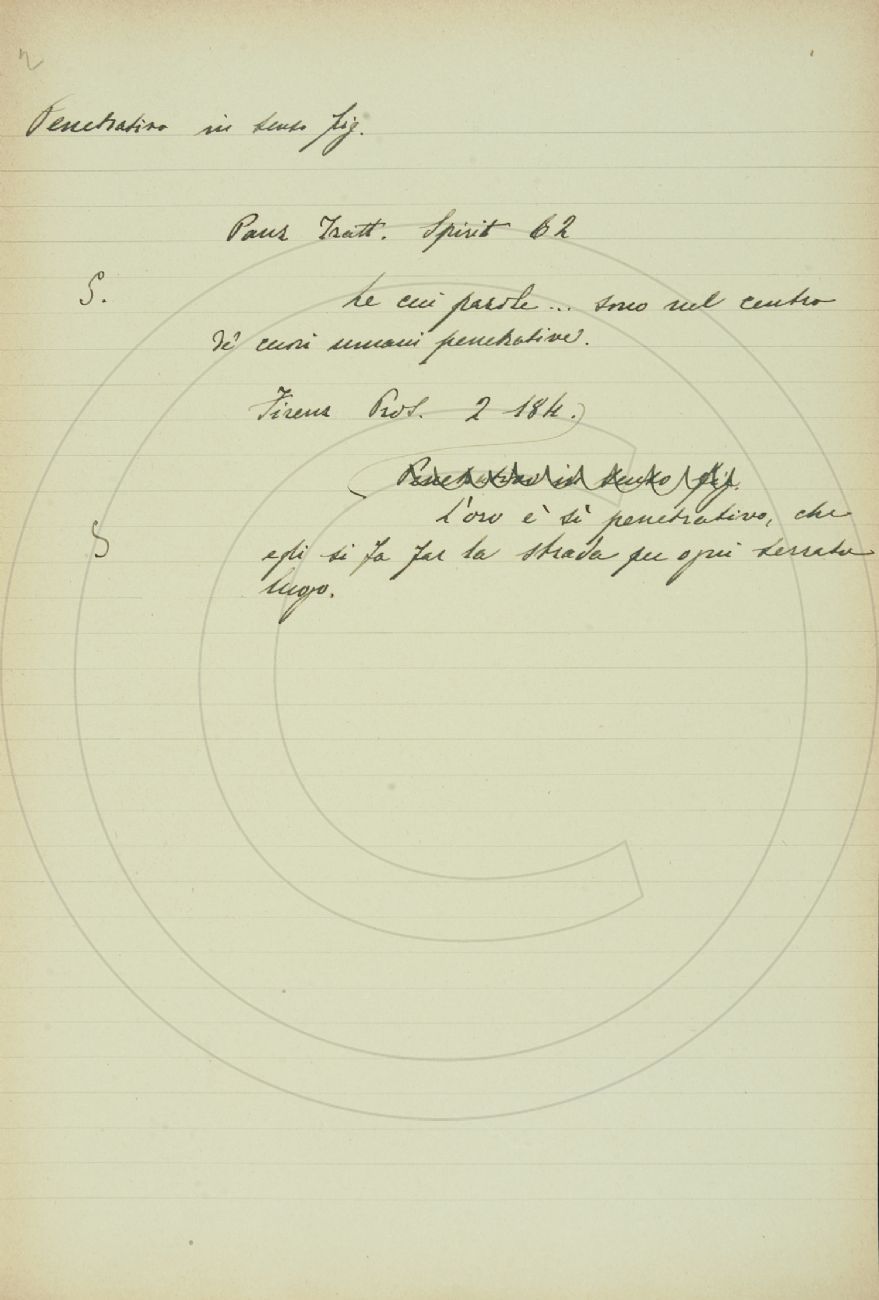 Penetrativo in senso fig.
Panz Tratt. Spirit 62
S. Le cui parole... sono nel centro
de' cuori umani penetrative.
Firenz Pros. 2 184.
Penetrativo in senso fig.
S L'oro è sì penetrativo, che
egli si fa far la strada per ogni serrato
luogo.